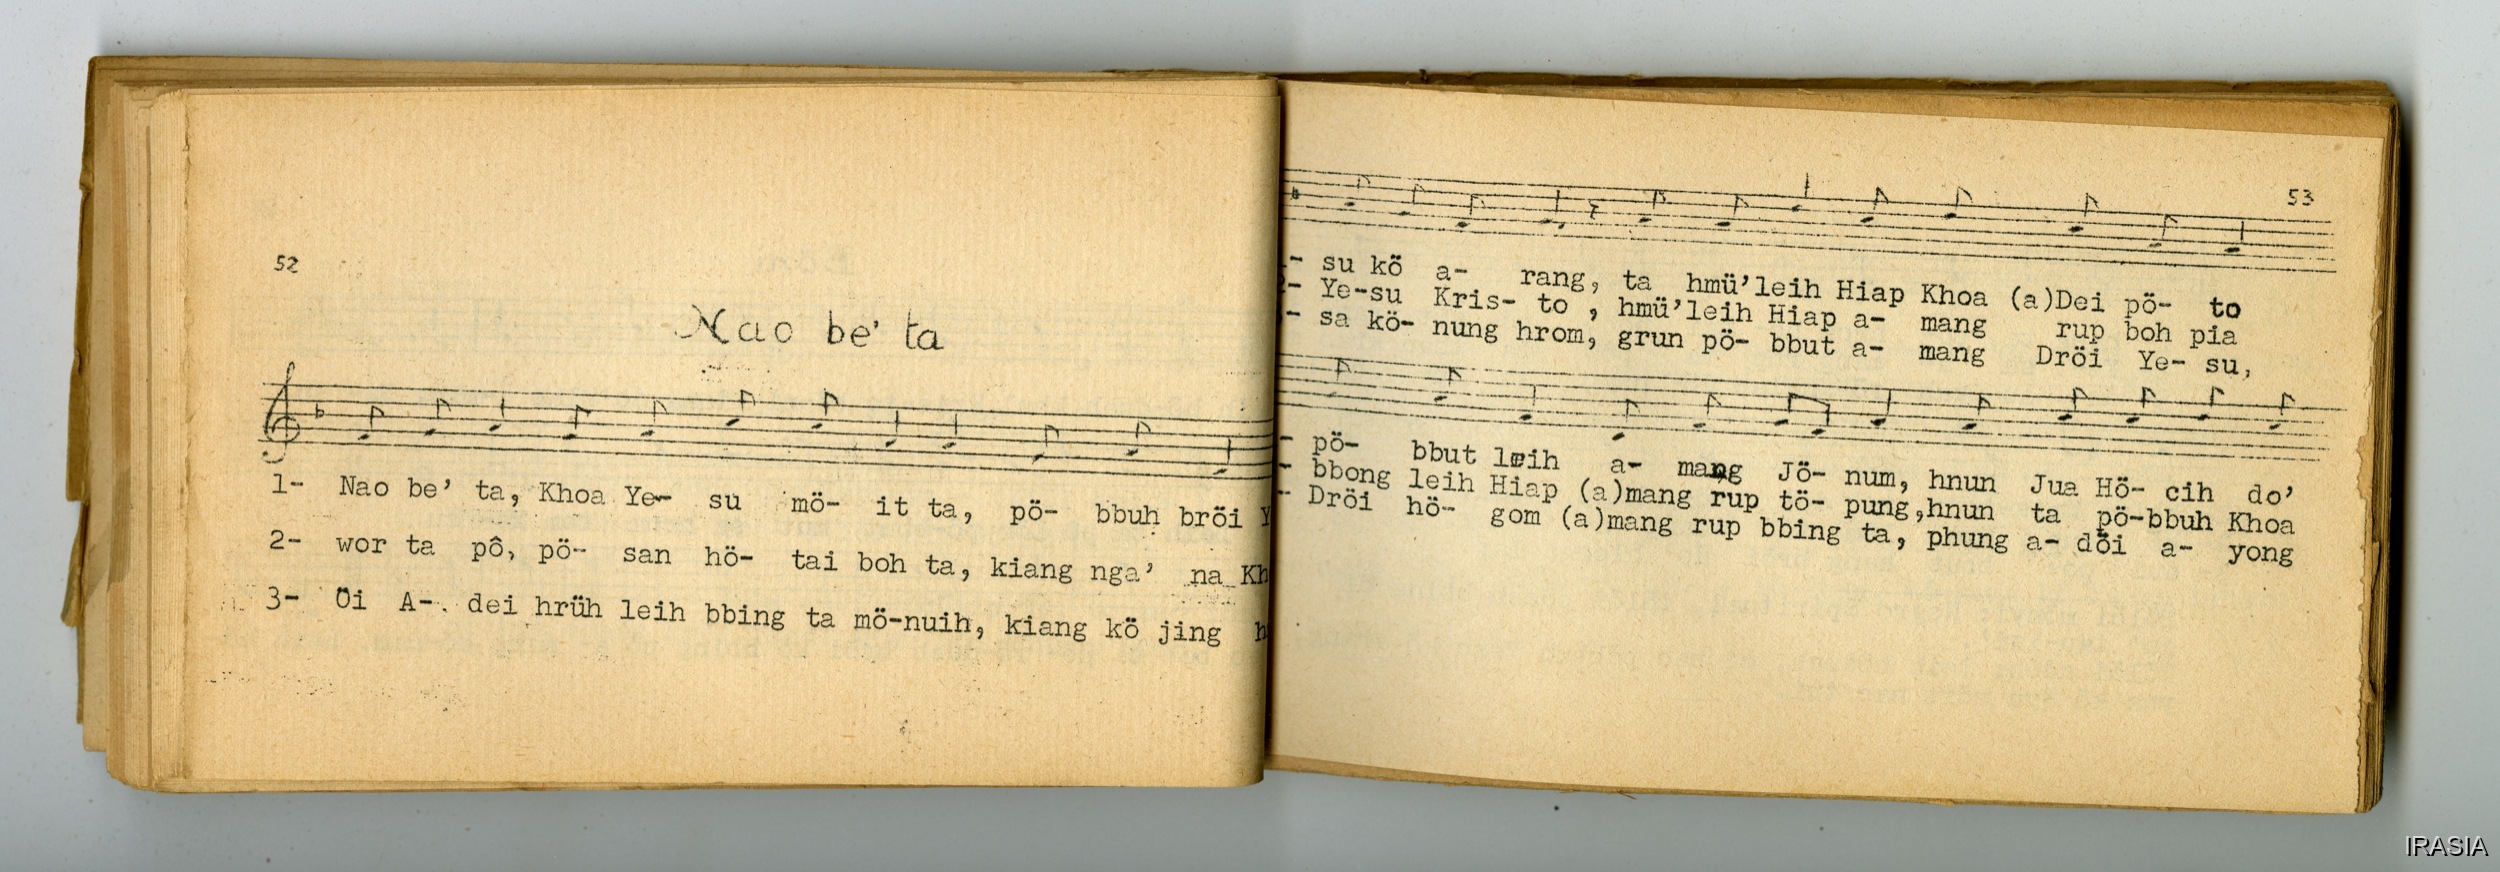 52
Nao be' ta
1- Nao be' ta, Khoa Ye- su mö- it ta, pö- bbuh bröi Y
2- wor ta pô, pö- san hö- tai boh ta, kiang nga' na Kh
3- Öi A- dei hrüh leih bbing ta mö-nuih, kiang kö jing h
53
- su kö a- rang, ta hmü'leih Hiap Khoa (a)Dei pö- to
- Ye-su Kris- to , hmü'leih Hiap a- mang rup boh pia
- sa kö- nung hrom, grun pö- bbut a- mang Dröi Ye- su,
- pö- bbut leih a- mang Jö- num, hnun Jua Hö- cih do'
- bbong leih Hiap (a)mang rup tö- pung,hnun ta pö-bbuh Khoa
- Dröi hö- gom (a)mang rup bbing ta, phung a- döi a- yong
IRASIA